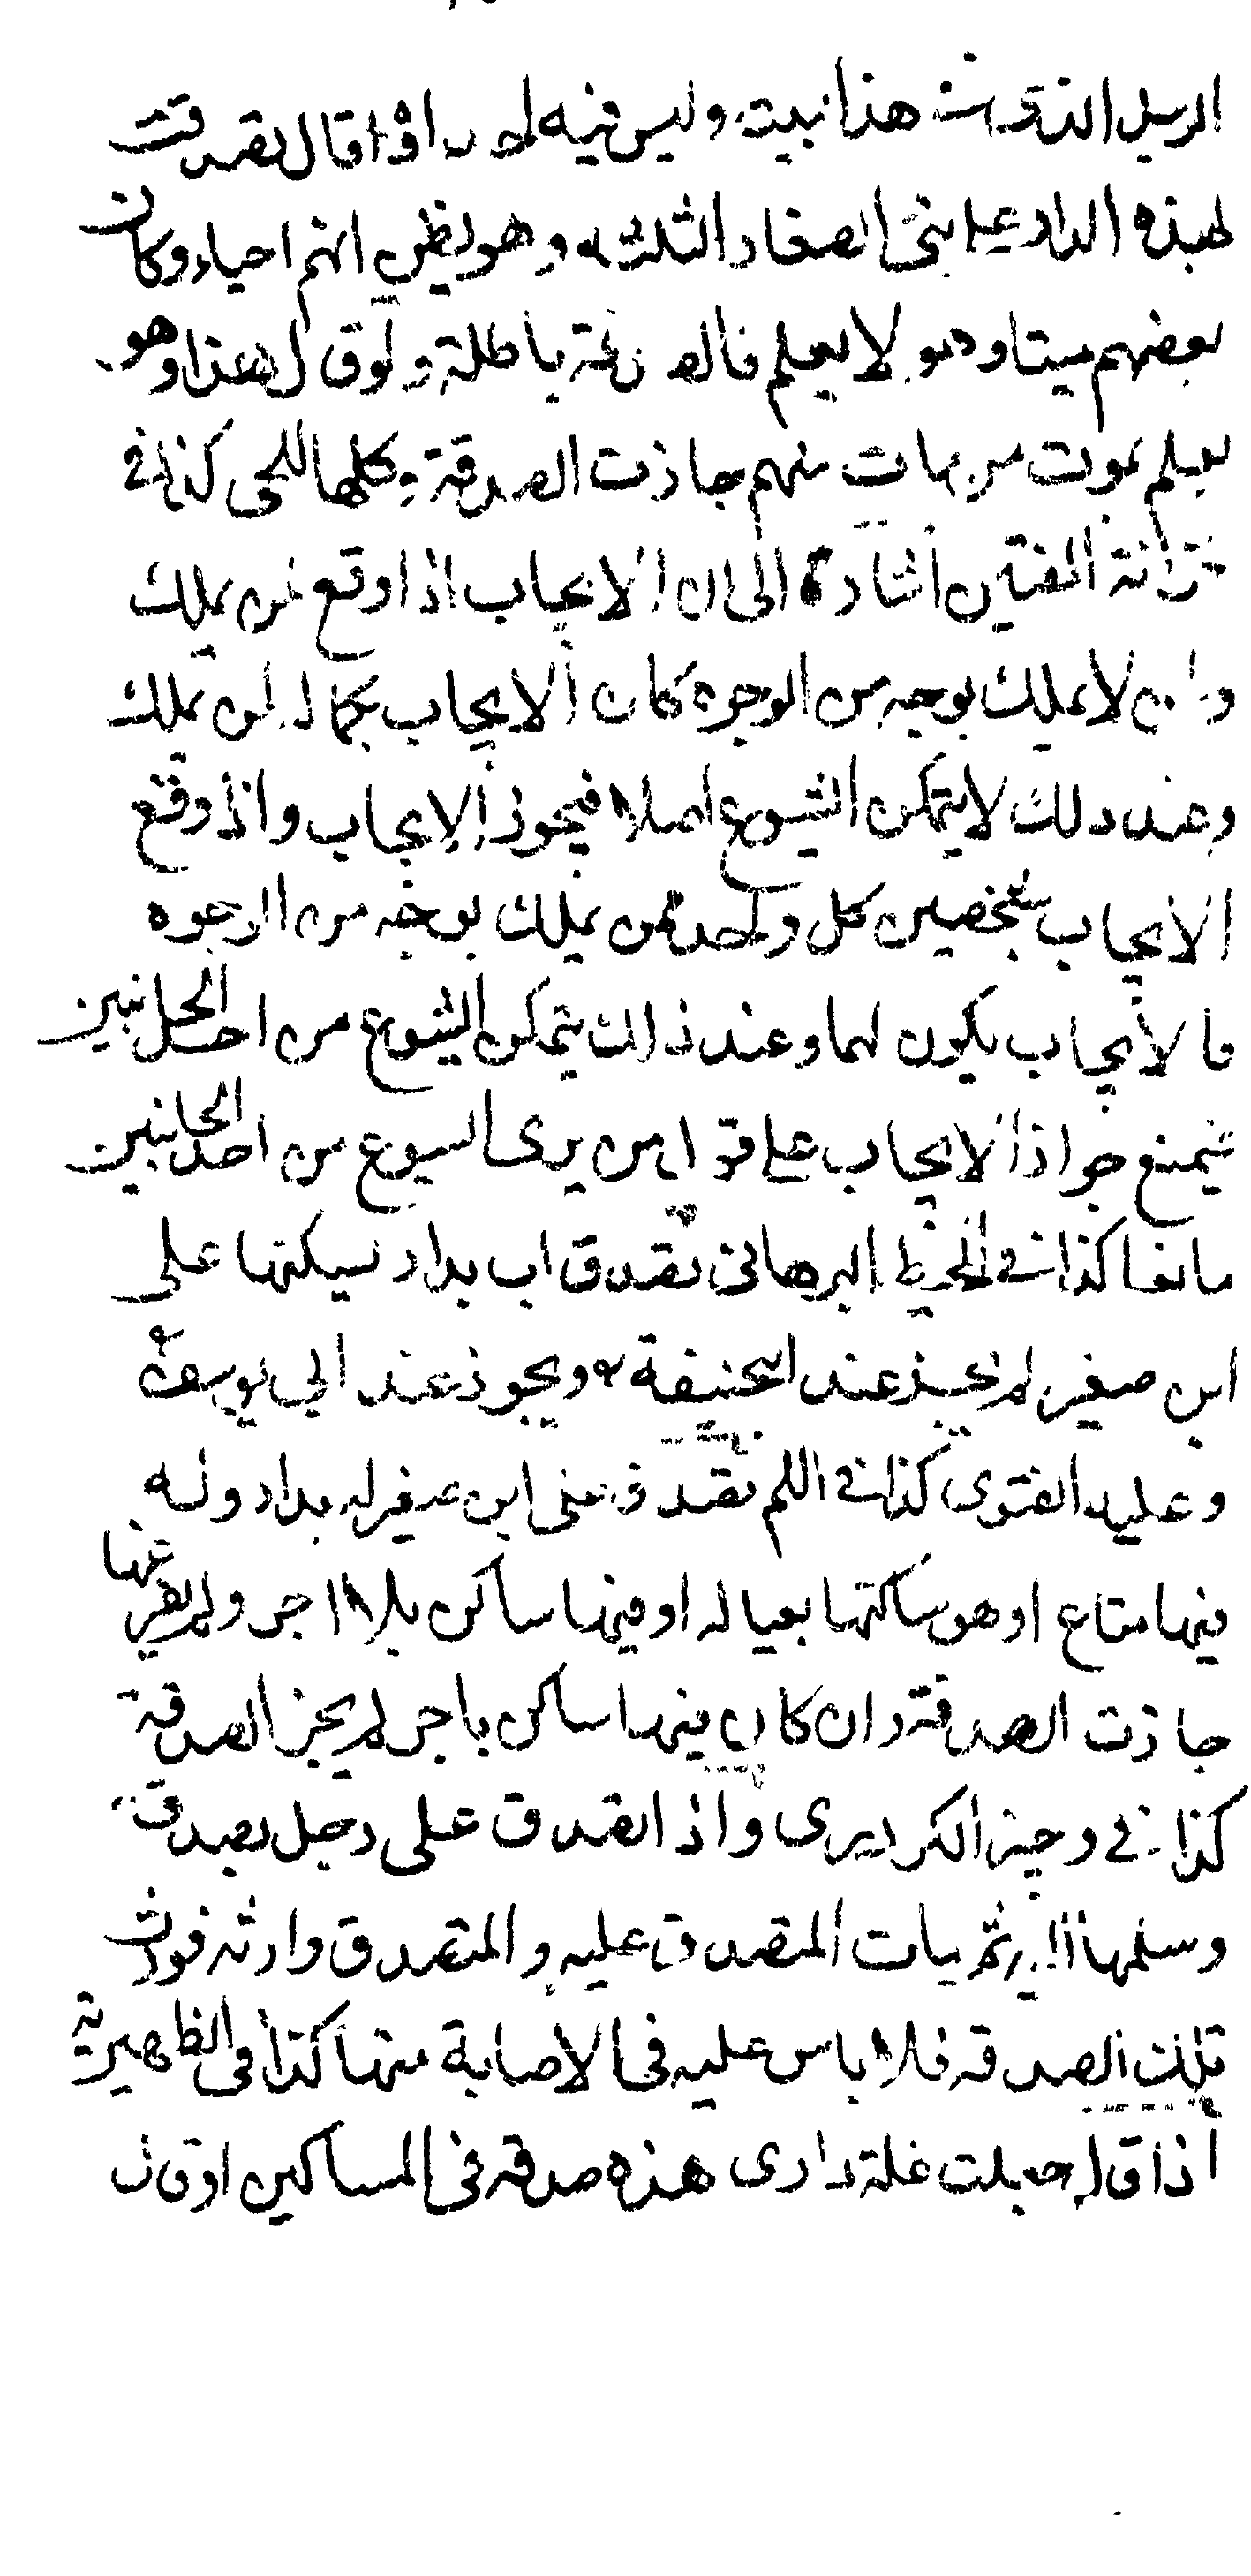 الرجل الذى هذا بيت وليس فيه احد اذا قال تصدقت
بهذه الدار على بنى الصغار الثلثة وهو يظن انهم احياء وكان
بعضهم ميتا وهو لا يعلم فالصدقة باطلة ولو قال هذا وهو
يعلم بموت من مات منهم جازت الصدقة وكلها للحى كذا فى
خزانة المفتين اشارة الى ان الايجاب اذا وقع لمن يملك
ولمن لا يملك بوجه من الوجوه كان الايجاب بكماله لمن يملك
وعند ذلك لا يتمكن الشيوع اصلا فيجوز الايجاب واذا وقع
الايجاب لشخصين كل واحد ممن يملك بوجه من الوجوه
فالايجاب يكون لهما وعند ذلك يتمكن الشيوع من احد الجانبين
فيمنع جواز الايجاب على قول من يرى الشيوع من احد الجانبين
مانعا كذا فى المحيط البرهانى تصدق اب بدار يسكنها على
ابن صغير لم يجز عند ابيحنيفة ويجوز عند ابي يوسف
وعليه الفتوى كذا فى تصدق على ابن صغير له بدار وله
فيها متاع او هو ساكنها بعياله او فيها ساكن بلا اجر ولم يفرغها
جازت الصدقة وان كان فيها ساكن باجر لم يجز الصدقة
كذا فى وجيز الكردرى واذا تصدق على رجل بصدقة
وسلمها اليه ثم مات المتصدق عليه والمتصدق وارثه فورث
تلك الصدقة فلا باس عليه فى الاصابة منها كذا فى الظهيرية
اذا قال جعلت غلة دارى هذه صدقة فى المساكين او قال